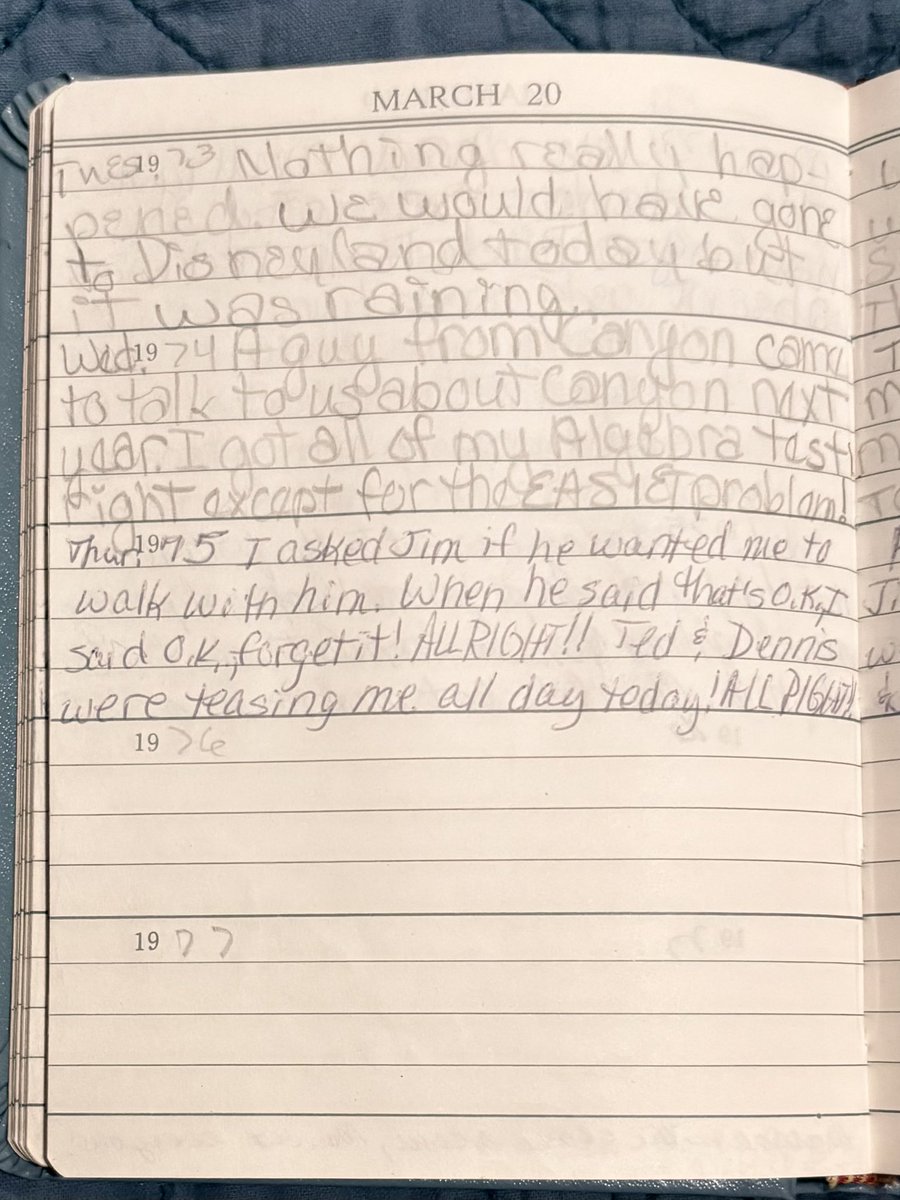 MARCH 20
Tues. 1973 Nothing really hap-
pened. We would have gone
to Disneyland today but
it was raining.
Wed. 1974 A guy from Canyon came
to talk to us about Canyon next
year. I got all of my Algebra test
right except for the EASIEST problem!
Thur. 1975 I asked Jim if he wanted me to
walk with him. When he said that's O.K. I
said O.K., forget it! ALLRIGHT!! Ted & Dennis
were teasing me all day today! ALL RIGHT!!
1976
1977